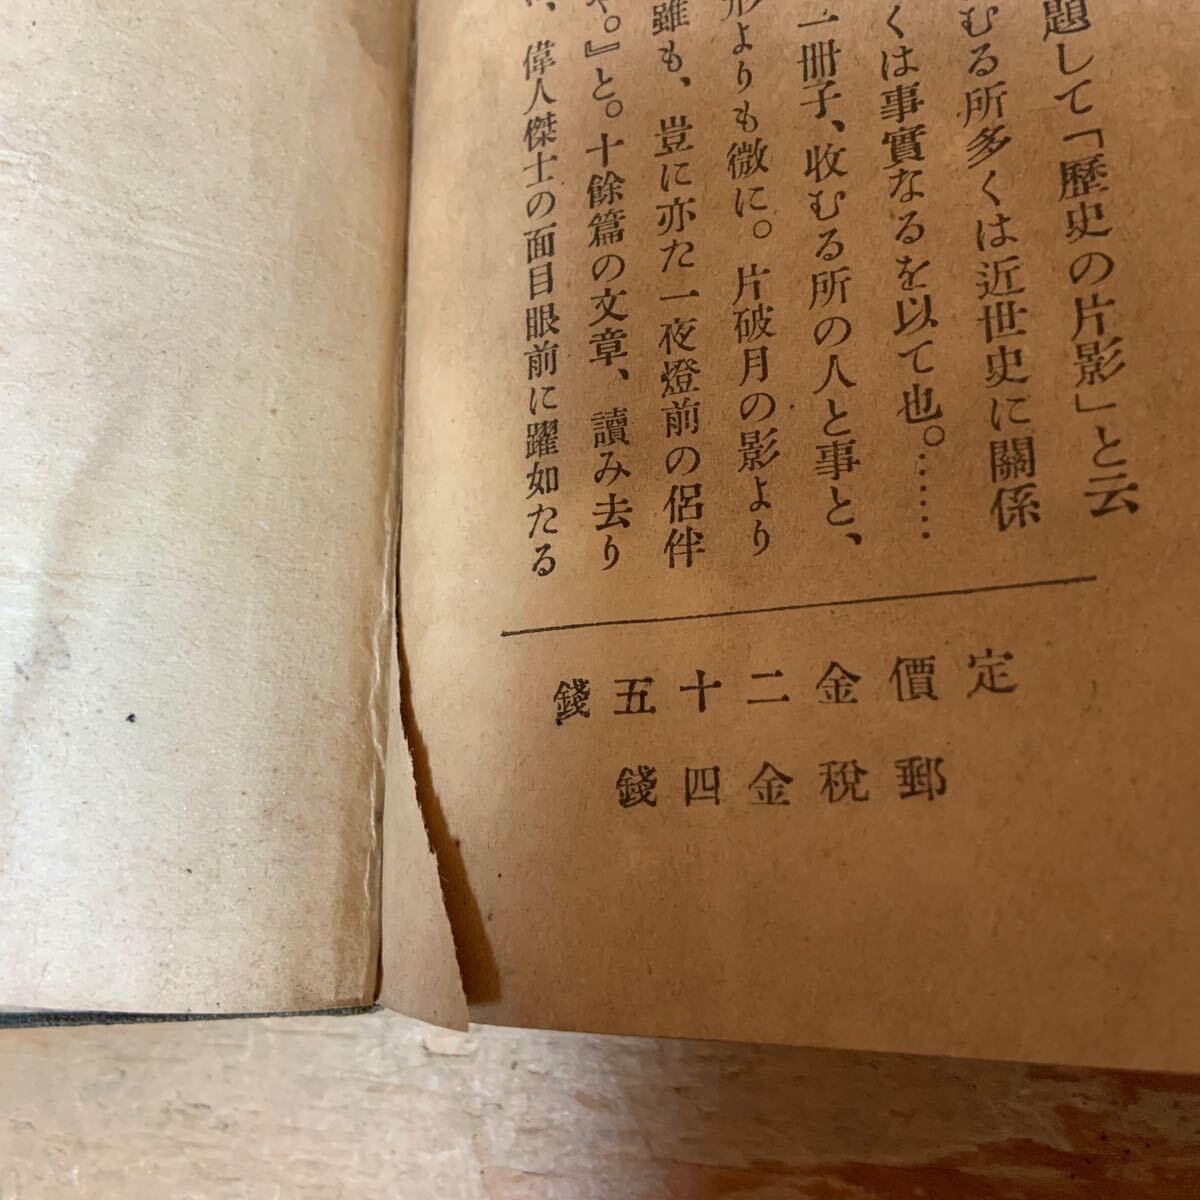 題して「歷史の片影」と云
むる所多くは近世史に關係
くは事實なるを以て也。……
一冊子、收むる所の人と事と、
形よりも微に。片破月の影より
雖も、豈に亦た一夜燈前の侶伴
や。』と。十餘篇の文章、讀み去り
、偉人傑士の面目眼前に躍如たる
定價金二十五錢
郵稅金四錢